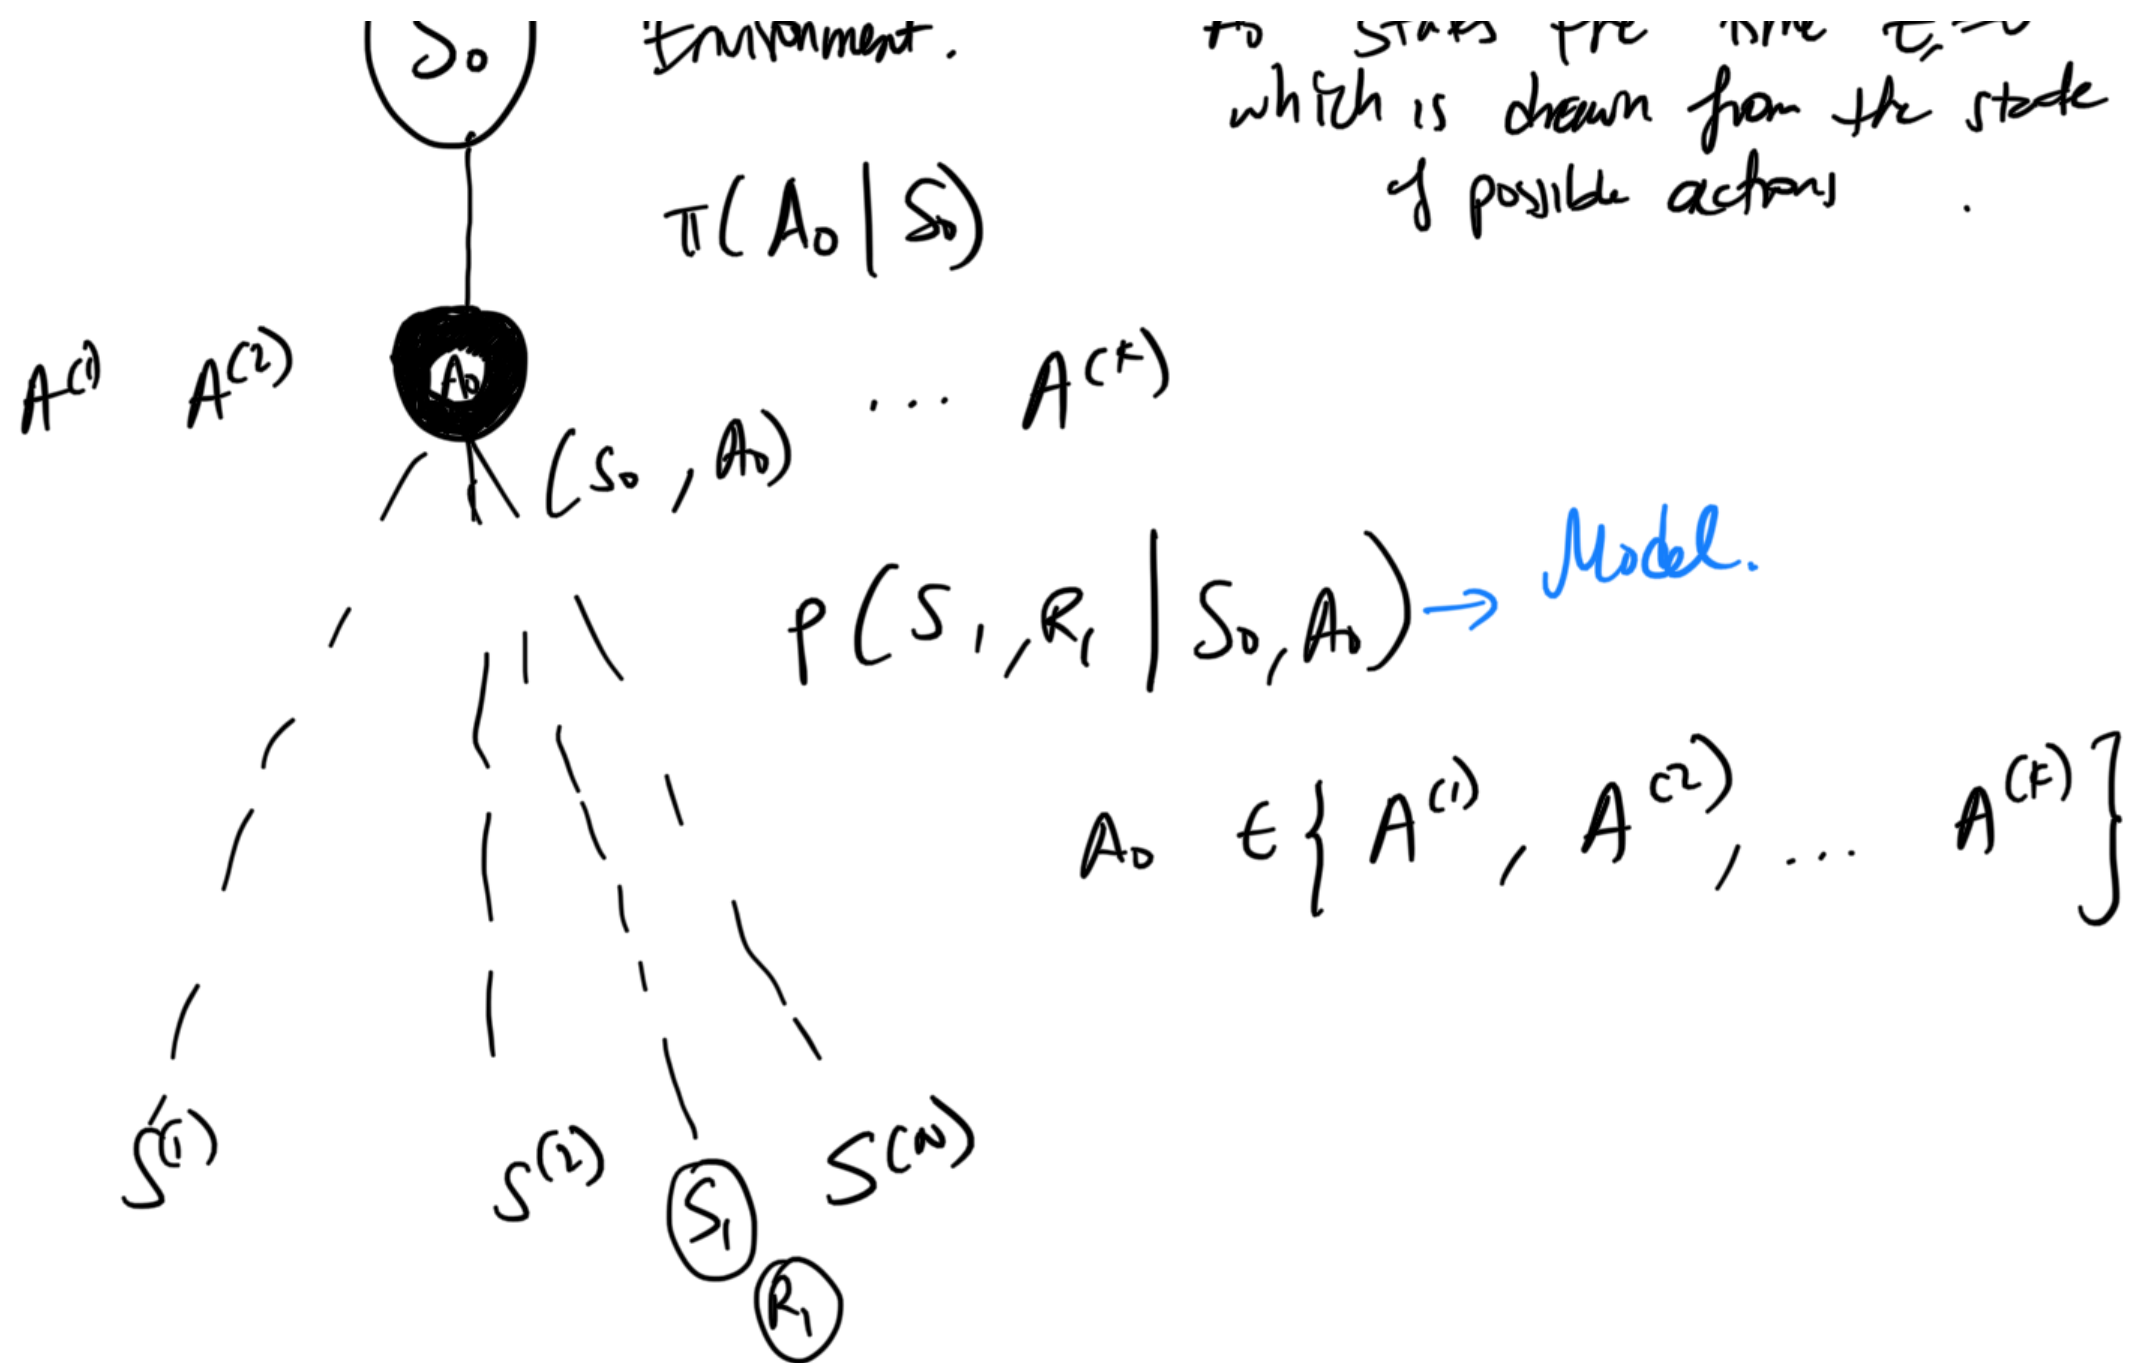 S₀
Environment.
A₀ states the time t=0
which is drawn from the state
of possible actions .
π(A₀|S₀)
A⁽¹⁾ A⁽²⁾ A₀ ... A⁽ᴷ⁾
(S₀, A₀)
P(S₁, R₁ | S₀, A₀) → Model.
A₀ ∈ { A⁽¹⁾, A⁽²⁾, ... A⁽ᴷ⁾ }
S⁽¹⁾ S⁽²⁾ S₁ S⁽ᴺ⁾
R₁